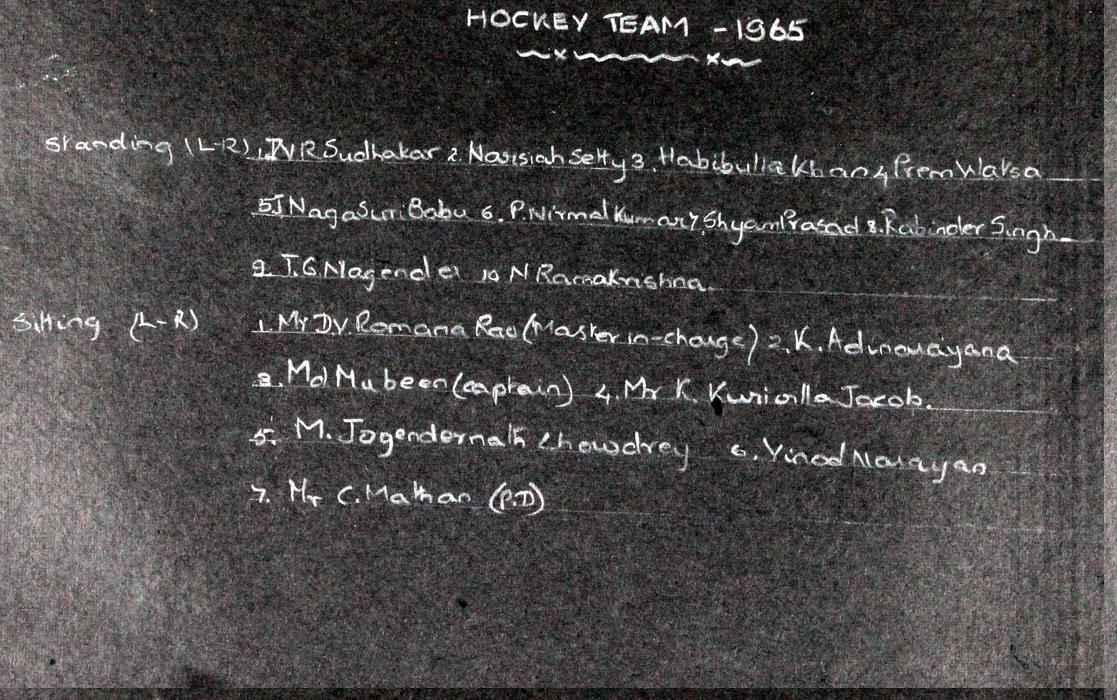 HOCKEY TEAM - 1965
Standing (L-R) 1. TVR Sudhakar 2. Narsiah Setty 3. Habibulla Khan 4 Prem Watsa
5 J Naga Suri Babu 6. P. Nirmal Kumar 7. Shyam Prasad 8. Rabinder Singh
9. T.G Nagender 10 N Ramakrishna.
Sitting (L-R) 1. Mr D.V. Romana Rao (Master in-charge) 2. K. Adinarayana
3. Md Mubeen (captain) 4. Mr K. Jacob.
5. M. Jogendernath Chowdrey 6. Vinod Narayan
7. Mr C. Mathan (P.D)